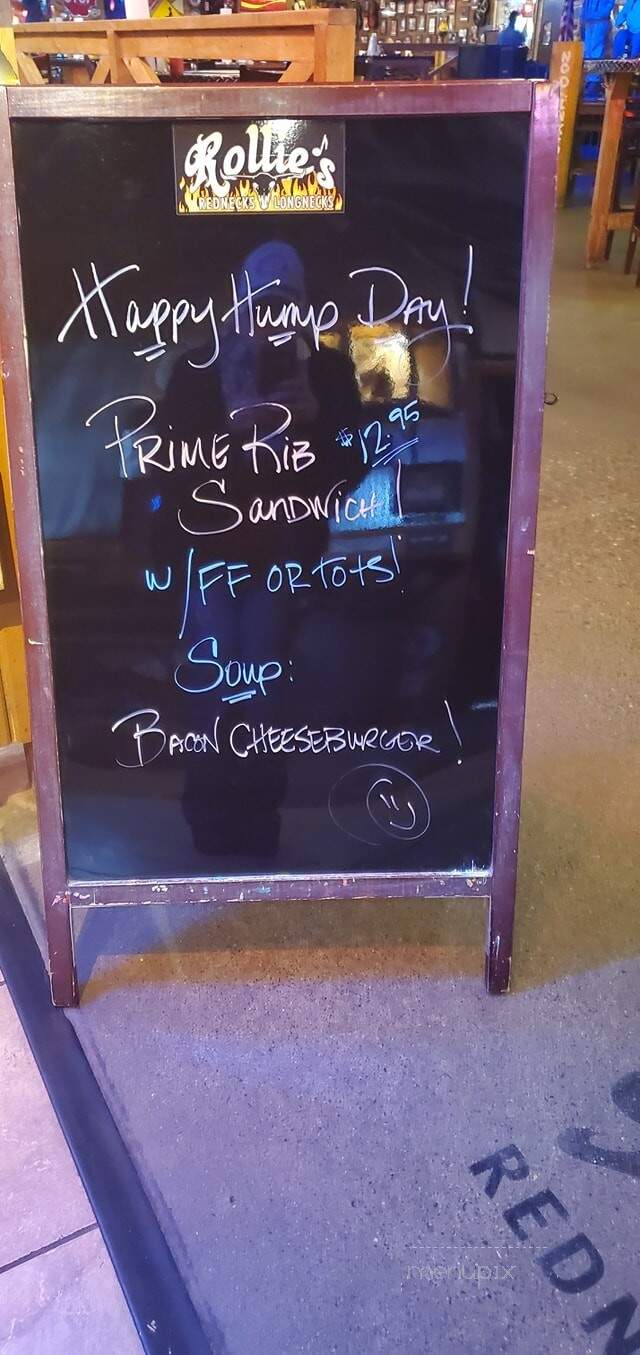 Rollie's
REDNECKS LONGNECKS
Happy Hump Day!
PRIME RIB $12.95
SANDWICH!
W/FF OR TOTS!
Soup:
BACON CHEESEBURGER!
REDN
menupix